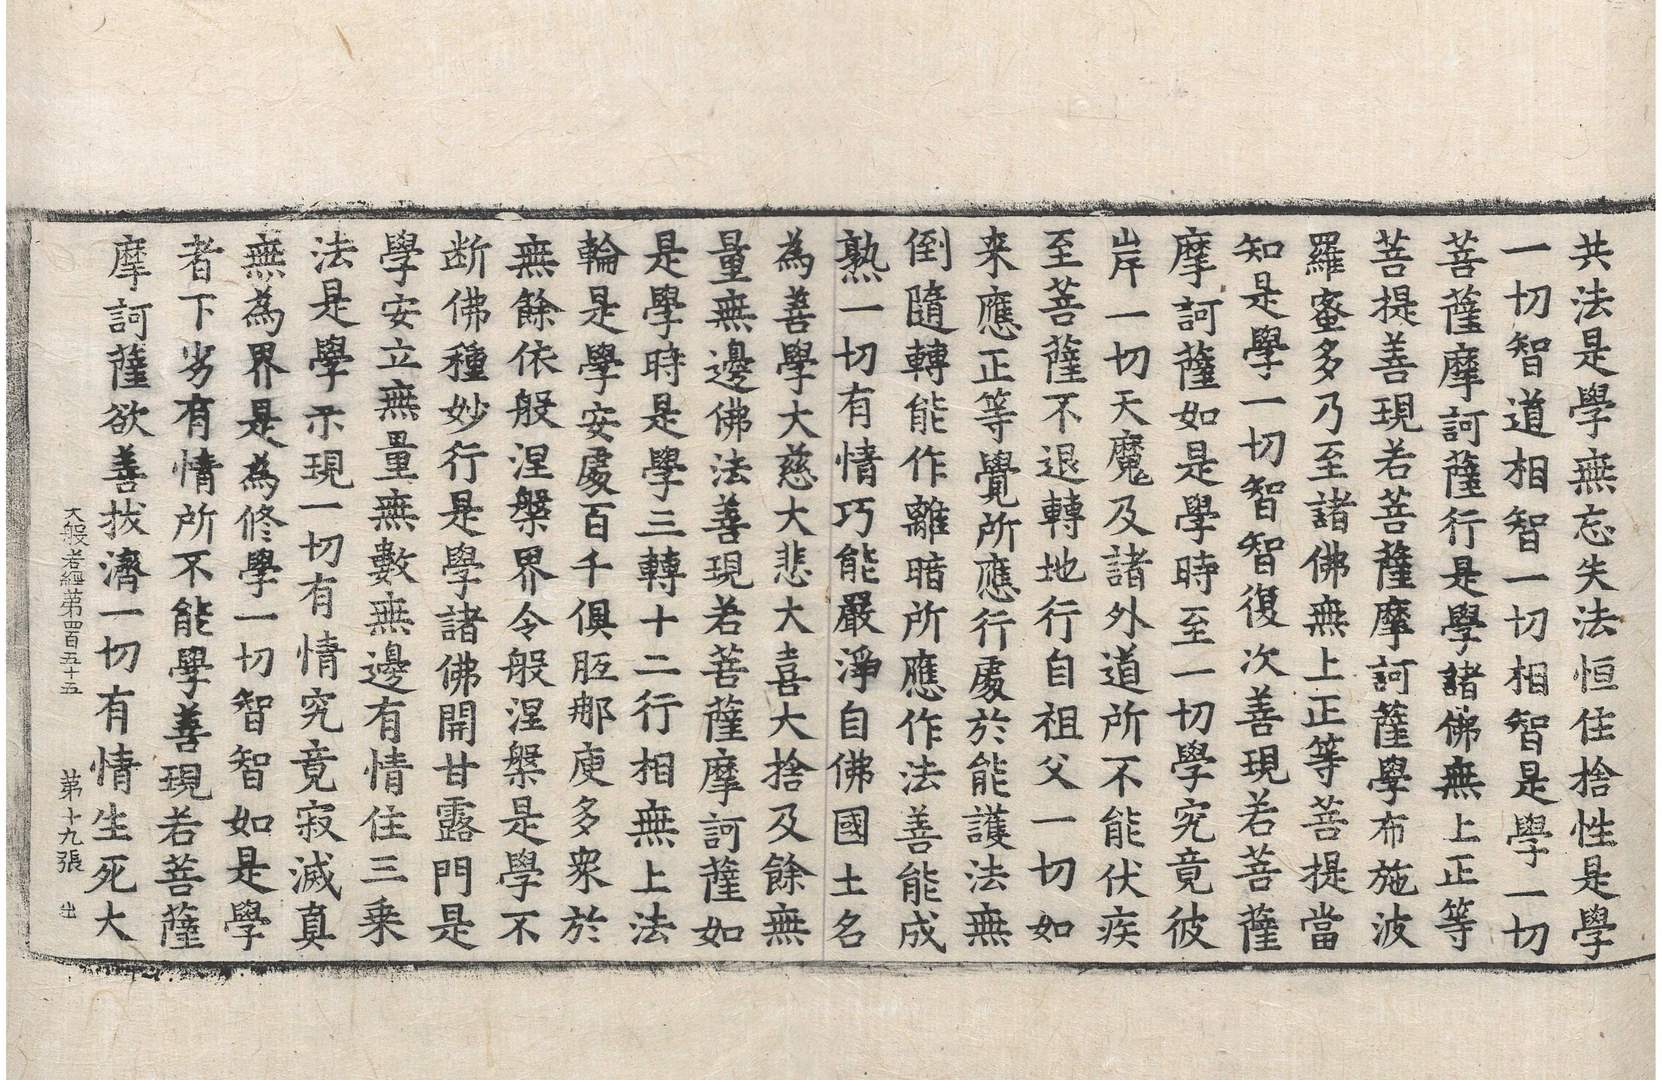 共法是學無忘失法恒住捨性是學
一切智道相智一切相智是學一切
菩薩摩訶薩行是學諸佛無上正等
菩提善現若菩薩摩訶薩學布施波
羅蜜多乃至諸佛無上正等菩提當
知是學一切智智復次善現若菩薩
摩訶薩如是學時至一切學究竟彼
岸一切天魔及諸外道所不能伏疾
至菩薩不退轉地行自祖父一切如
来應正等覺所應行處於能護法無
倒隨轉能作離暗所應作法善能成
熟一切有情巧能嚴淨自佛國土名
為善學大慈大悲大喜大捨及餘無
量無邊佛法善現若菩薩摩訶薩如
是學時是學三轉十二行相無上法
輪是學安處百千俱胝那庾多衆於
無餘依般涅槃界令般涅槃是學不
断佛種妙行是學諸佛開甘露門是
學安立無量無數無邊有情住三乗
法是學示現一切有情究竟寂滅真
無為界是為修學一切智智如是學
者下劣有情所不能學善現若菩薩
摩訶薩欲善拔濟一切有情生死大
大般若經第四百五十五　第十九張　出